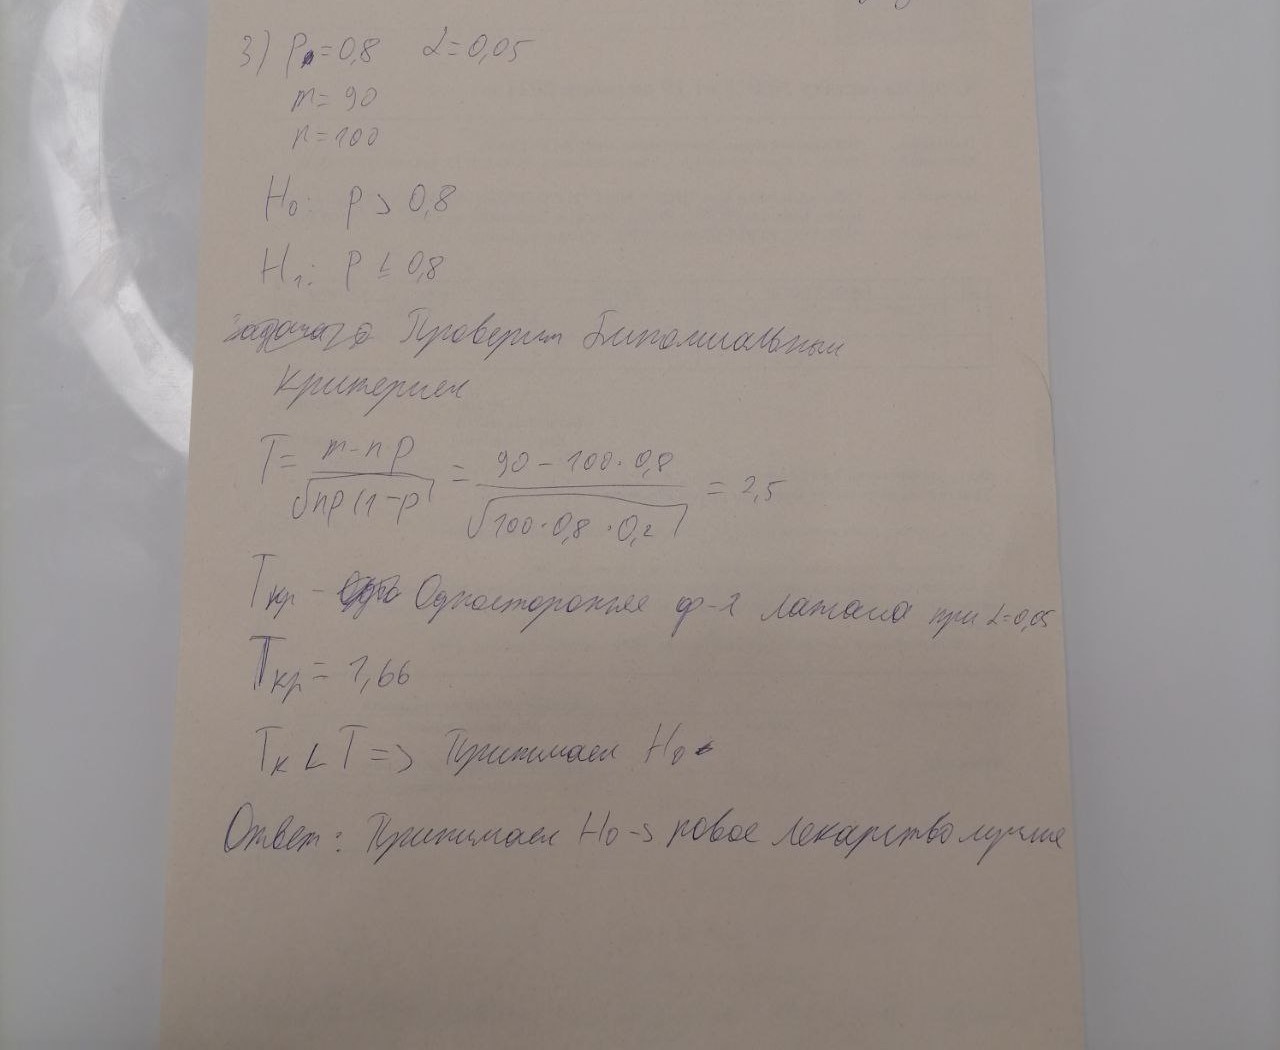 3) p=0,8 α=0,05
m=90
n=100
H₀: p > 0,8
H₁: p ≤ 0,8
Проверим Биномиальным
критерием
T= m-np / √np(1-p) = 90-100·0,8 / √100·0,8·0,2 = 2,5
Tкр - Односторонняя ф-я лапласа при α=0,05
Tкр= 1,66
Tк < T => Принимаем H₀
Ответ: Принимаем H₀ -> новое лекарство лучше